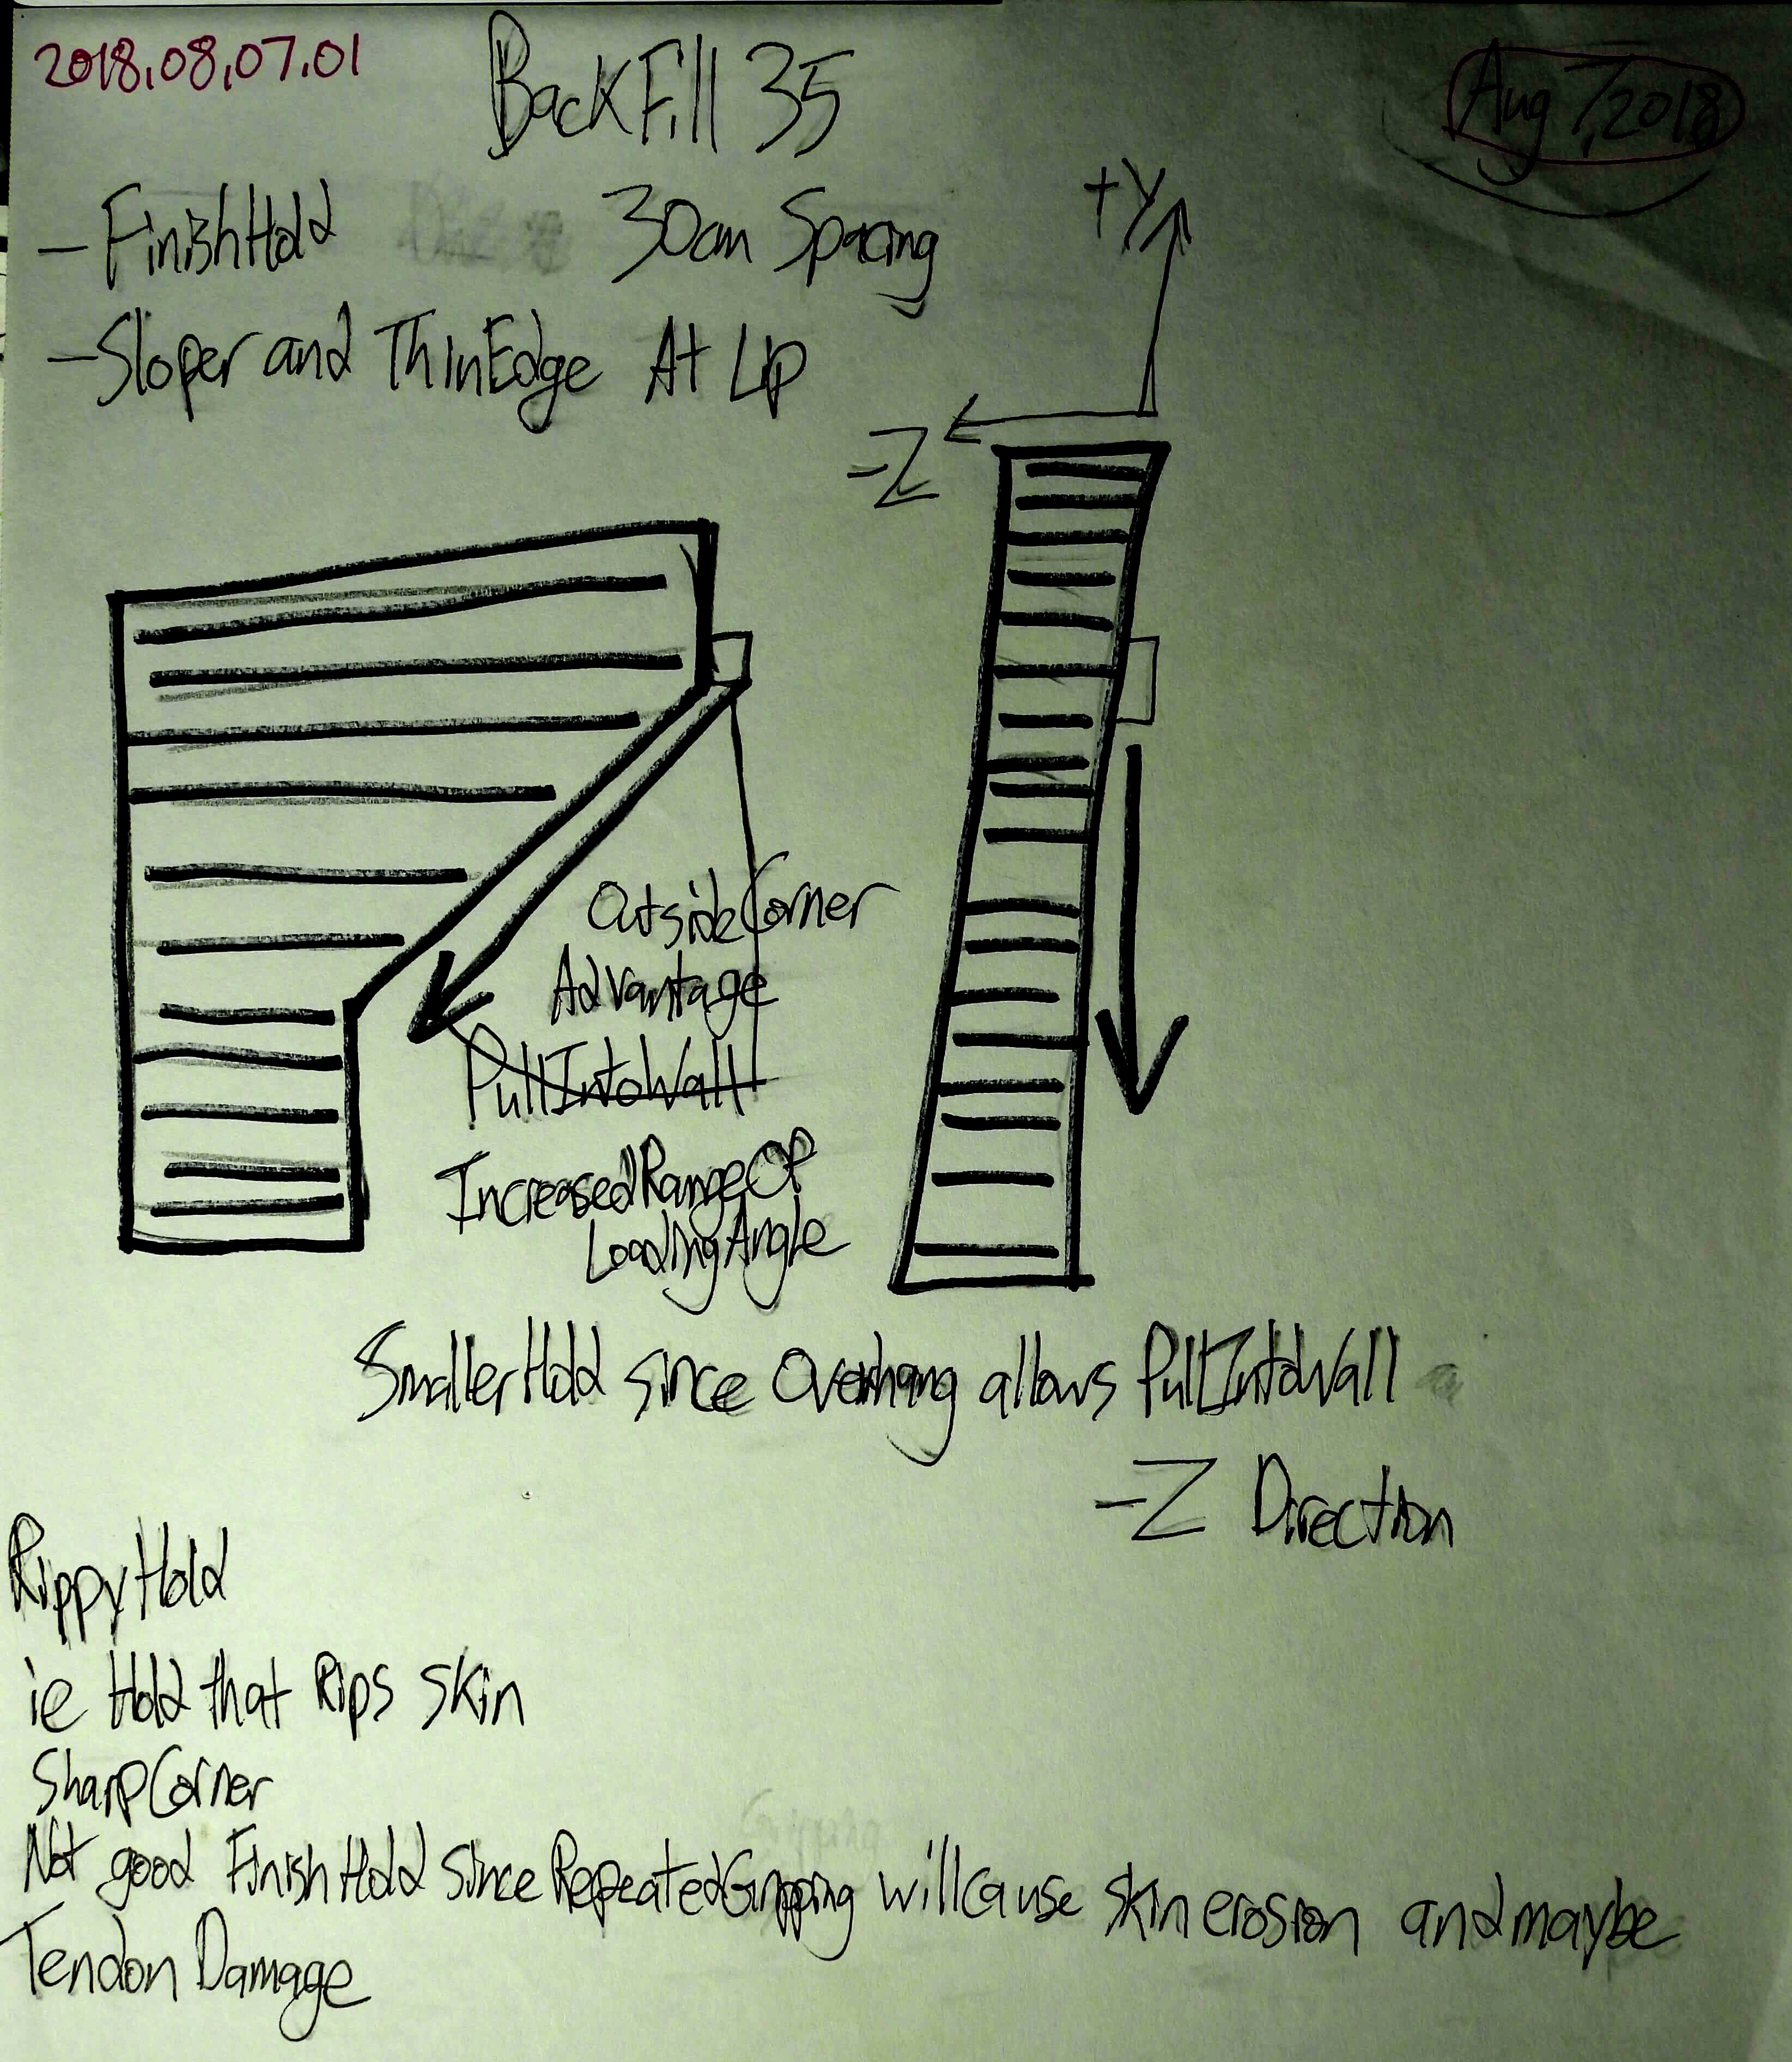 2018.08.07.01
BackFill 35
Aug 7, 2018
-FinishHold
30cm Spacing
+Y
-Sloper and ThinEdge At Lip
-Z
OutsideCorner
Advantage
PullIntoWall
IncreasedRangeOf
LoadingAngle
SmallerHold since Overhang allows PullIntoWall
-Z Direction
RippyHold
ie Hold that Rips skin
SharpCorner
Gripping
Not good FinishHold since RepeatedGripping willcause skin erosion and maybe
Tendon Damage